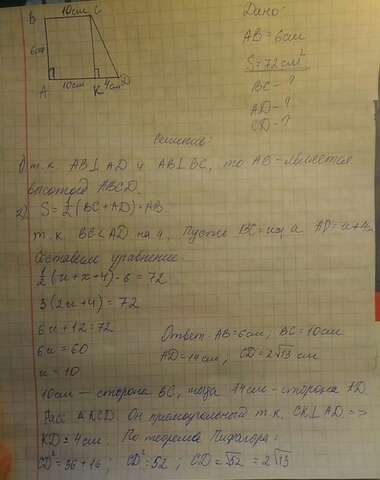 Дано:
AB = 6см
S = 72 см²
BC - ?
AD - ?
CD - ?
B 10см C
6см
A 10см K 4см D
Решение:
1) т.к. AB⊥AD и AB⊥BC, то AB - является
высотой ABCD.
2) S = 1/2 (BC + AD)·AB
т.к. BC < AD на 4, Пусть BC = x, а AD = x+4
Составим уравнение:
1/2 (x + x + 4) · 6 = 72
3(2x+4) = 72
6x + 12 = 72
6x = 60
x = 10
Ответ: AB = 6см; BC = 10см
AD = 14см, CD = 2√13 см
10см - сторона BC, тогда 14см - сторона AD
Расс. △KCD. Он прямоугольный т.к. CK⊥AD =>
KD = 4см По теореме Пифагора:
CD² = 36 + 16; CD² = 52; CD = √52 = 2√13